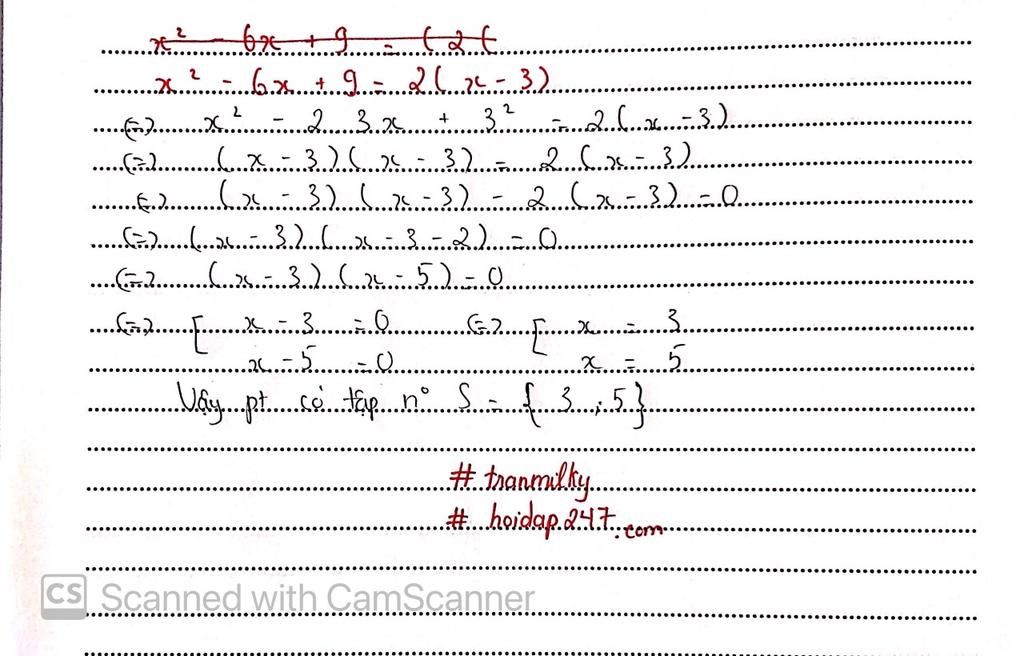 x² - 6x + 9 = (2(
x² - 6x + 9 = 2(x - 3)
(=) x² - 2 3.x + 3² = 2.(x - 3)
(=) (x - 3)(x - 3) = 2 (x - 3)
(=) (x - 3) (x - 3) - 2 (x - 3) = 0
(=) (x - 3) (x - 3 - 2) = 0
(=) (x - 3) (x - 5) = 0
(=) [ x - 3 = 0 (=) [ x = 3
x - 5 = 0 x = 5
Vậy pt có tập n° S = { 3 ; 5 }
# tranmilky
# hoidap247.com
CS Scanned with CamScanner